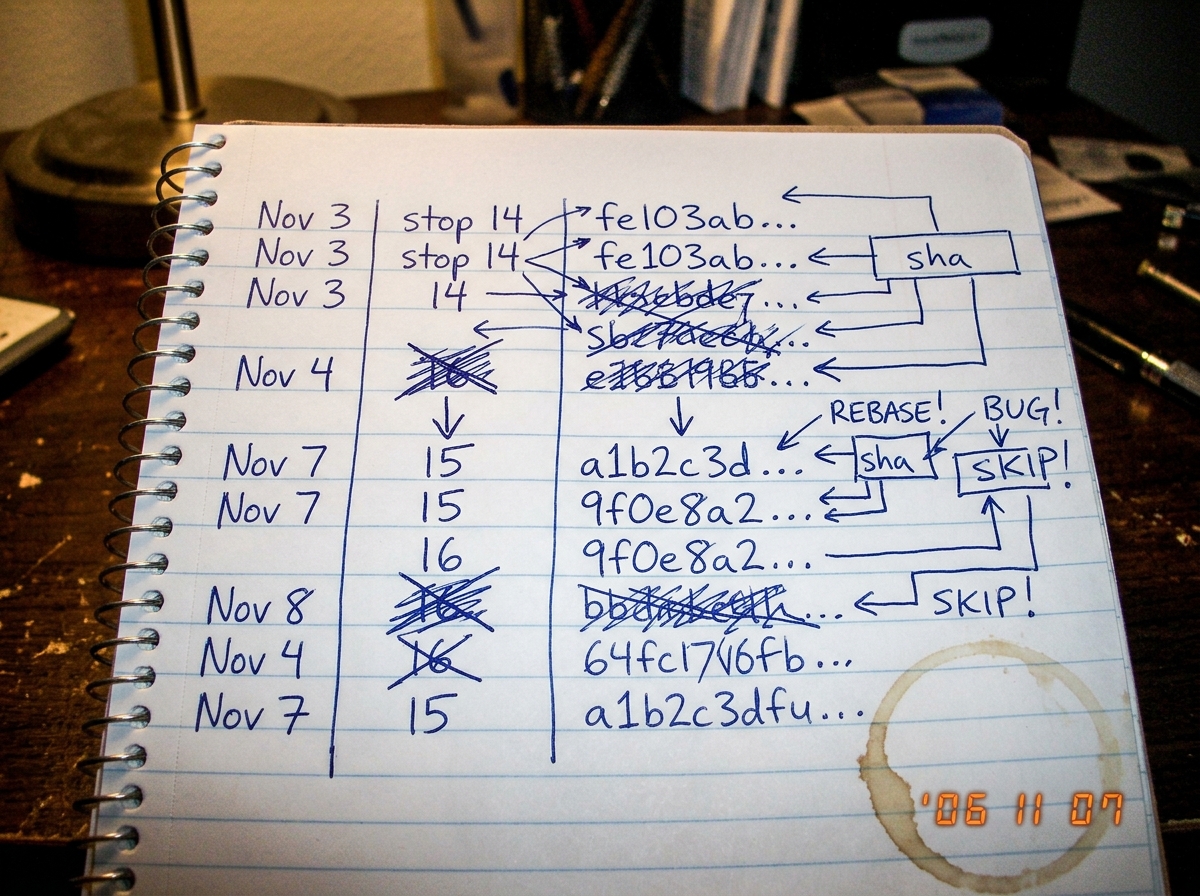 Nov 3 stop 14 fe103ab...
Nov 3 stop 14 fe103ab... sha
Nov 3 14 ...
...
Nov 4 16 ...
REBASE! BUG!
Nov 7 15 a1b2c3d... sha SKIP!
Nov 7 15 9f0e8a2...
16 9f0e8a2...
Nov 8 16 ... SKIP!
Nov 4 16 64fc17V6fb...
Nov 7 15 a1b2c3dfu...
'06 11 07